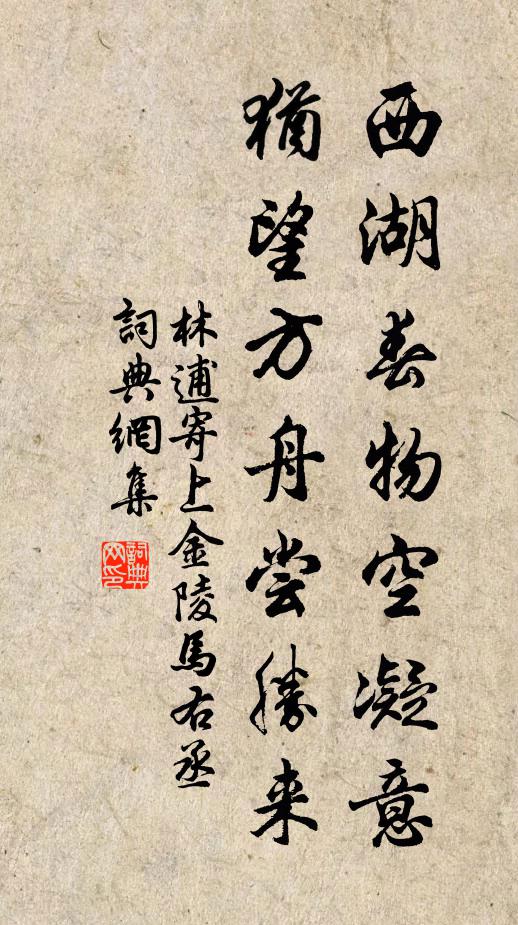 西湖春物空凝意
猶望方舟尝勝来
林逋寄上金陵馬右丞
詞典網集
詞典網印